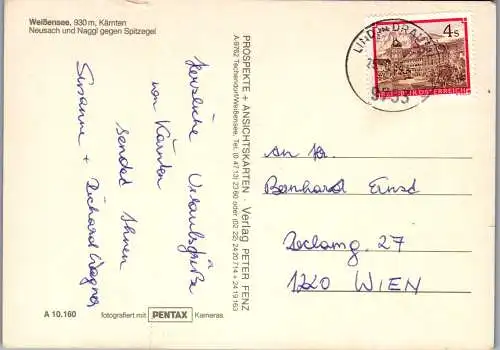 Weißensee, 930 m, Kärnten
Neusach und Naggl gegen Spitzegel
Herzliche Urlaubsgrüße
von Kärnten
sendet Ihnen
Susanne + Richard Wagner
PROSPEKTE + ANSICHTSKARTEN · Verlag PETER FENZ
A-9762 Techendorf/Weißensee, Tel. (0 47 13) 23 60 oder (02 22) 24 20 714 + 24 19 163
LIND IM DRAUTAL
9753
4 S
REPUBLIK ÖSTERREICH
An Fa.
Bernhard Ernst
Reclamg. 27
1220 WIEN
A 10.160 fotografiert mit PENTAX Kameras